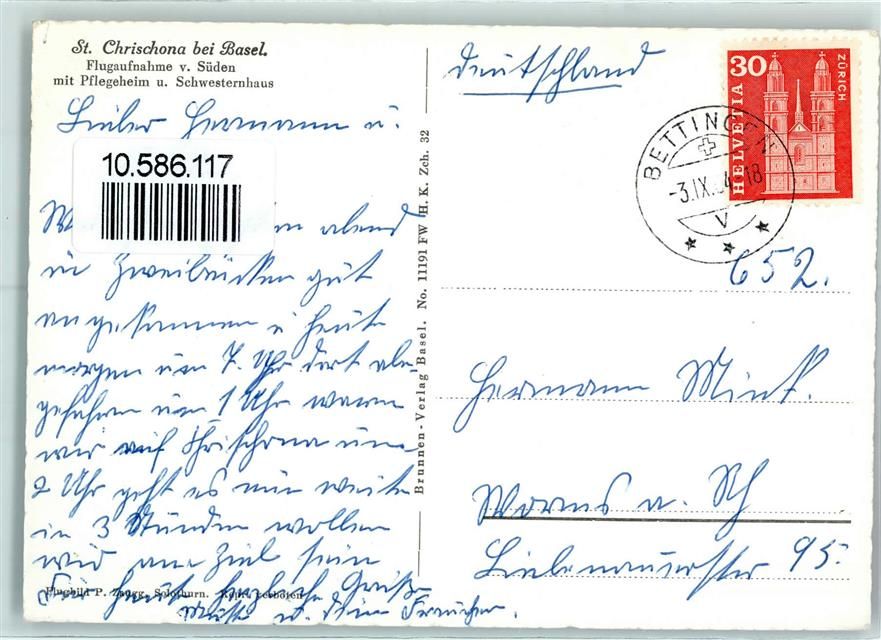 St. Chrischona bei Basel.
Flugaufnahme v. Süden
mit Pflegeheim u. Schwesternhaus
Lieber Hermann u.
10.586.117
abend
in Zweibrücken gut
angekommen u heute
morgen um 7. Uhr dort ab-
gefahren um 1 Uhr waren
wir auf Chrischona um
2 Uhr geht es nun weiter
in 3 Stunden wollen
wir am Ziel sein
Für heute herzliche Grüße
u. dein Frauchen.
Flugbild P. Zaugg, Solothurn.
Brunnen-Verlag Basel. No. 11191 FW H. K. Zch. 32
Deutschland
30
HELVETIA
ZÜRICH
BETTINGEN
-3.IX. 18
V
652.
Hermann
Worms a. Rh
Liebenauerstr 95.